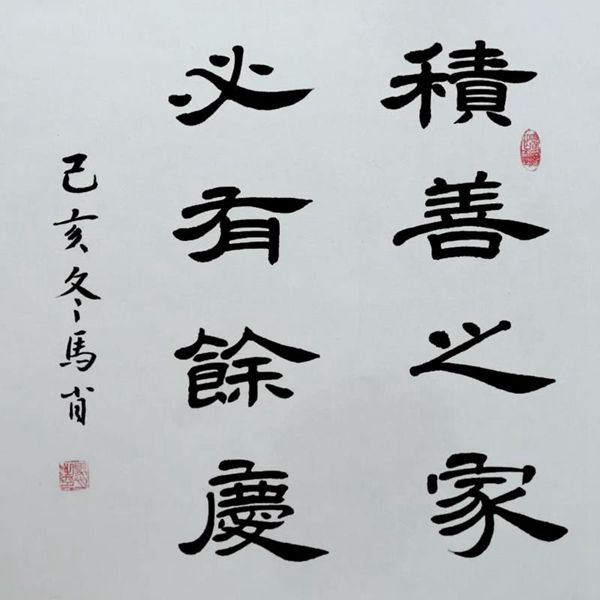 積善之家
必有餘慶
己亥冬馬肖